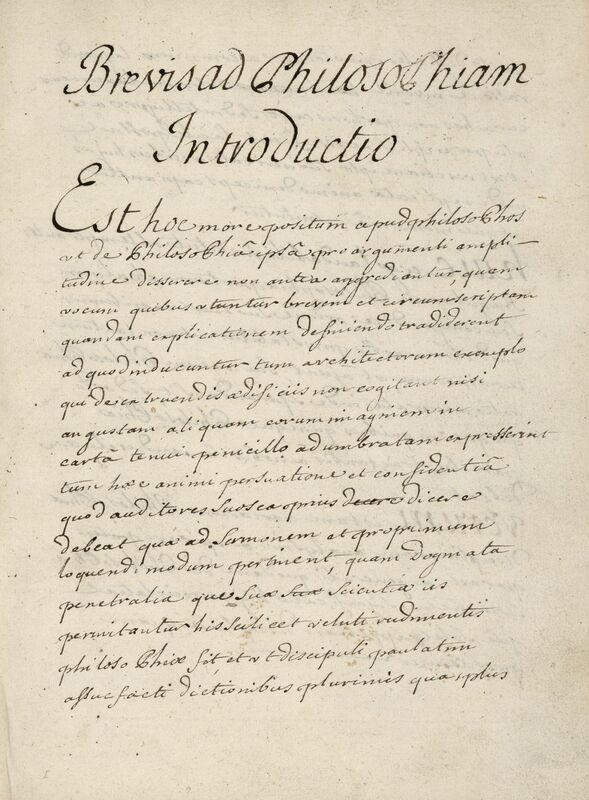 Brevis ad Philosophiam
Introductio
Est hoc more positum apud philosophos
vt de Philosophiā ipsā pro argumenti ampli-
tudine disserere non antea aggrediantur, quam
vocum quibus vtuntur brevem et circumscriptam
quandam explicationem definiendo tradiderent
ad quod inducuntur tum architectorum exemplo
qui de extruendis ædificiis non cogitant nisi
angustam aliquam eorum imaginem in
cartā tenui penicillo adumbratam expresserint
tum hæc animi persuatione et confidentiā
quod auditores suos ea prius dicere
debeat quæ ad sermonem et proprimum
loquendi modum pertinent, quam Dogmata
penetralia que suæ scientiæ iis
permitantur his scilicet veluti rudimentis
philosophiæ fit, et vt discipuli paulatim
assuefacti dictionibus plurimis quæ plus